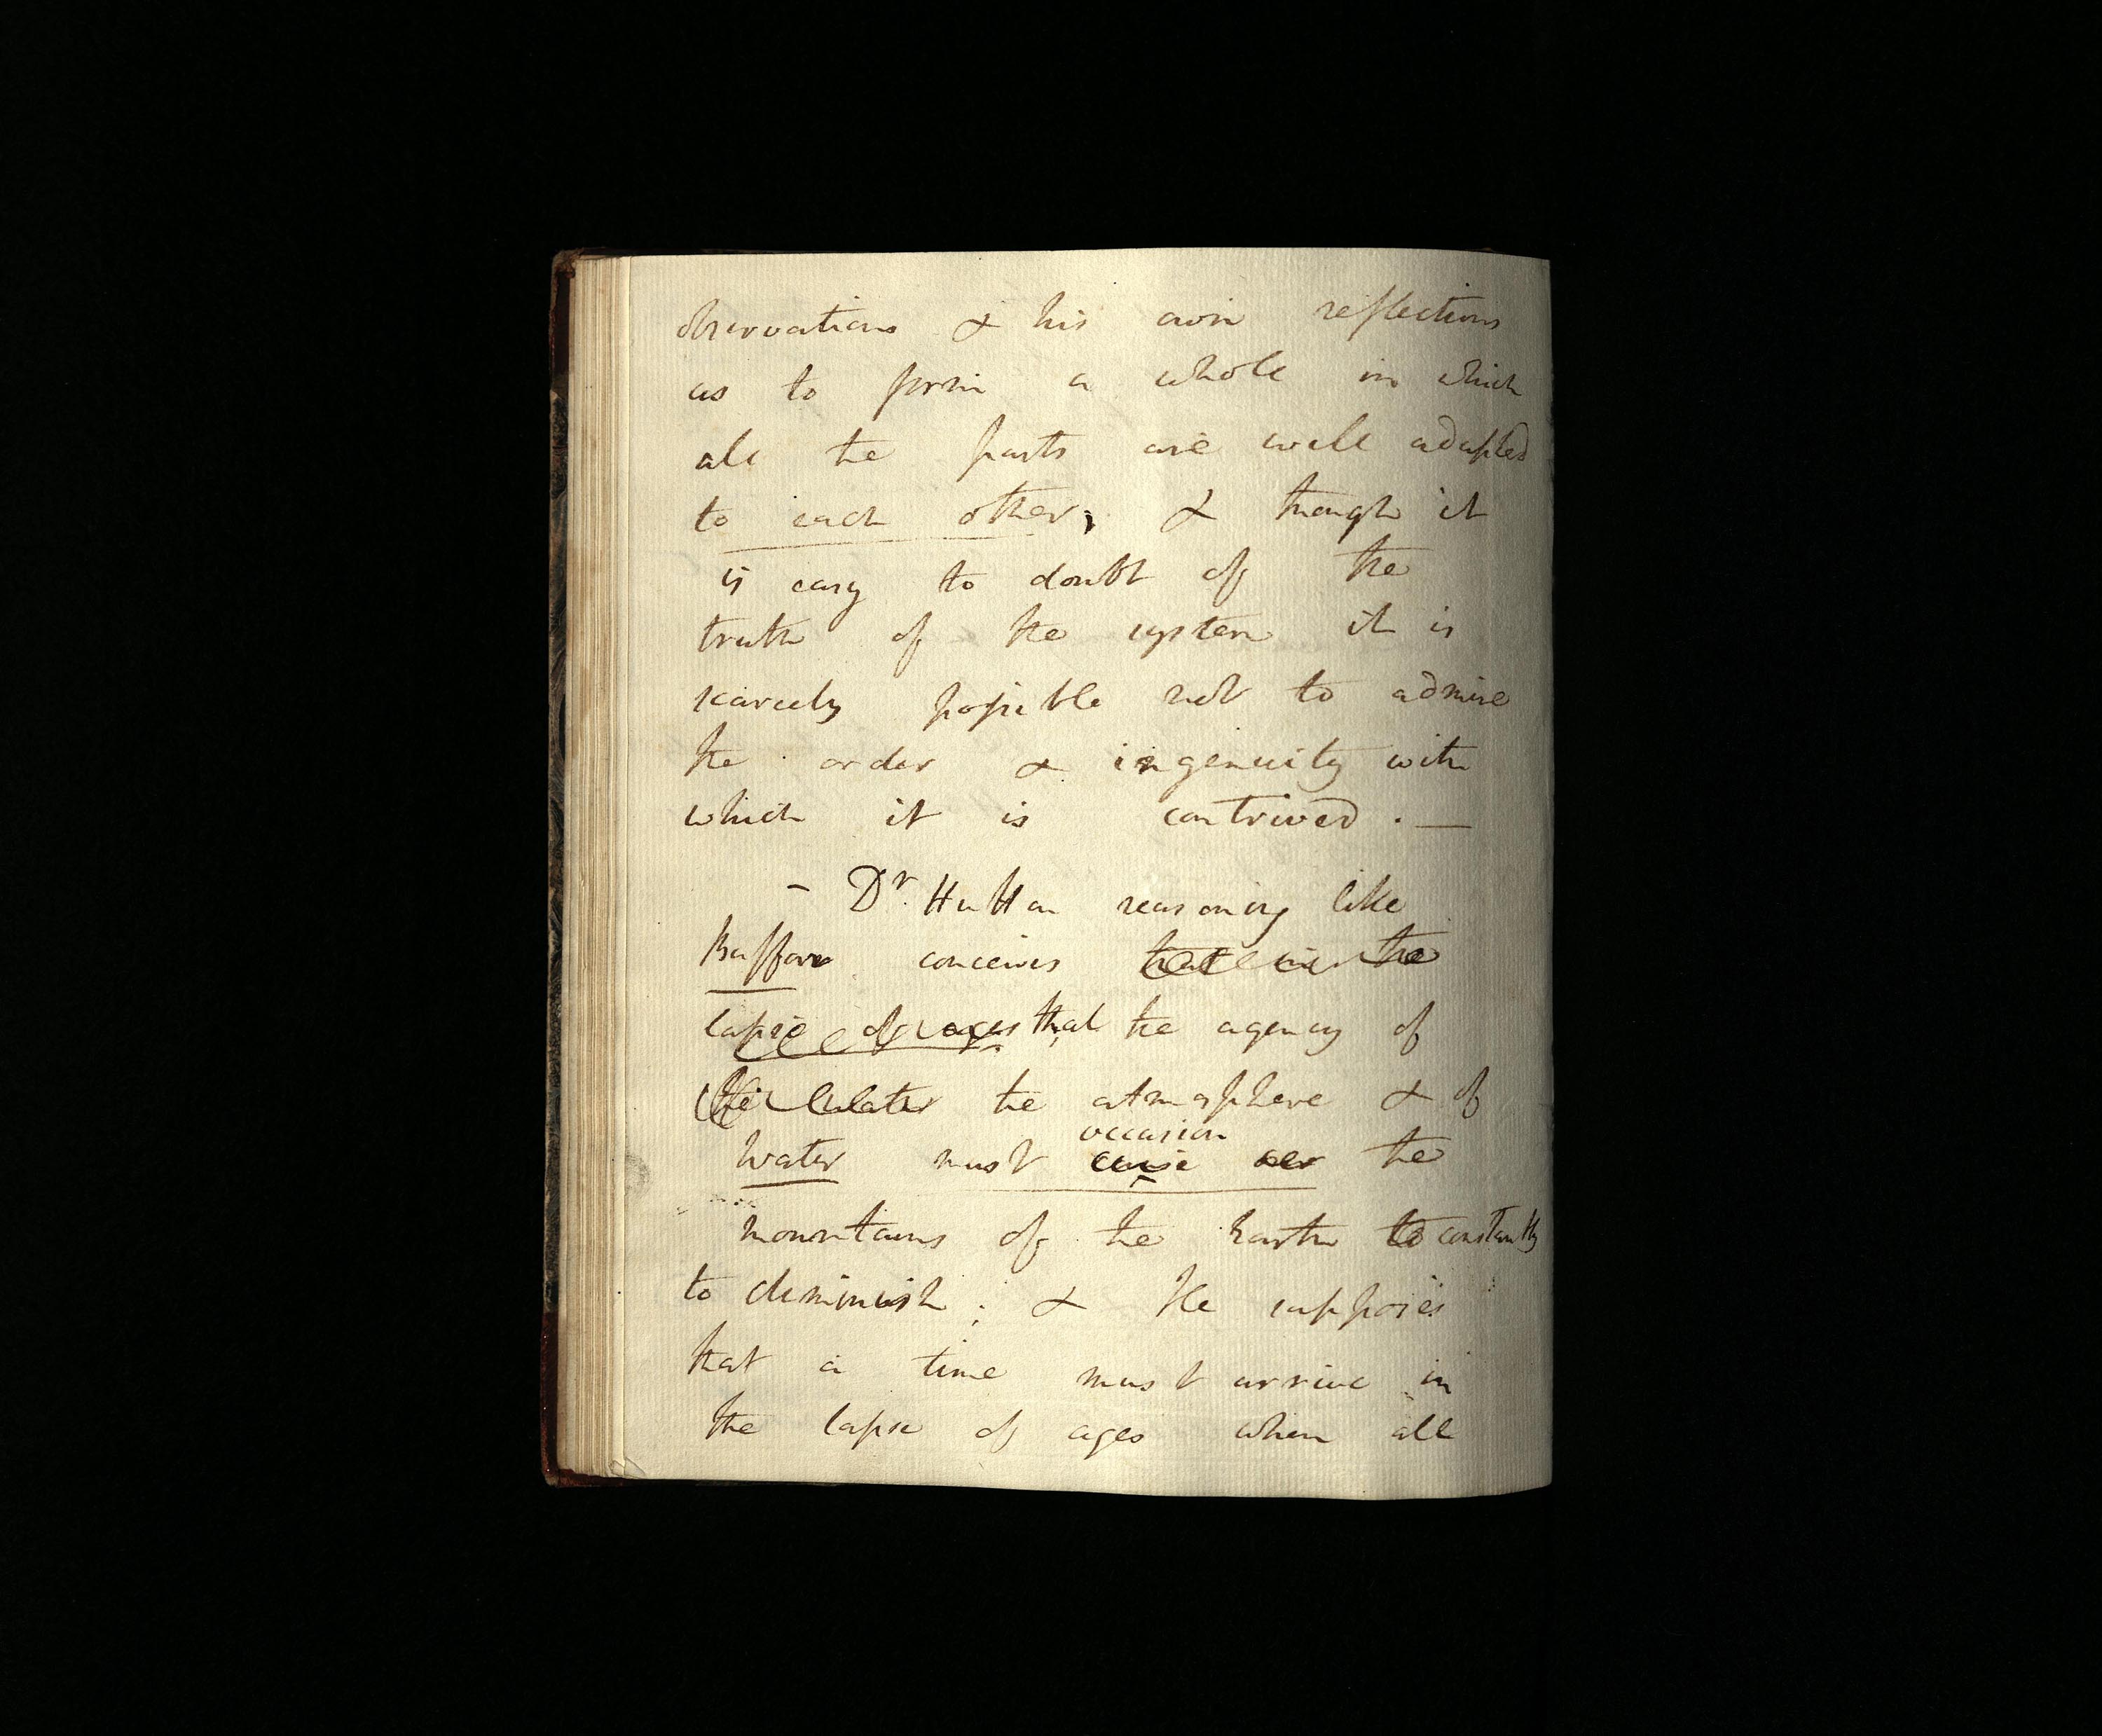 observations & his own reflections
as to form a whole in which
all the parts are well adapted
to each other, & though it
is easy to doubt of the
truth of the system it is
scarcely possible not to admire
the order & ingenuity with
which it is contrived. —
– Dr. Hutton reasoning like
Buffon conceives that in the
lapse of ages that the agency of
the water the atmosphere & of
occasion
water must cause all the
mountains of the Earth to constantly
to diminish; & He supposes
that a time must arrive in
the lapse of ages when all